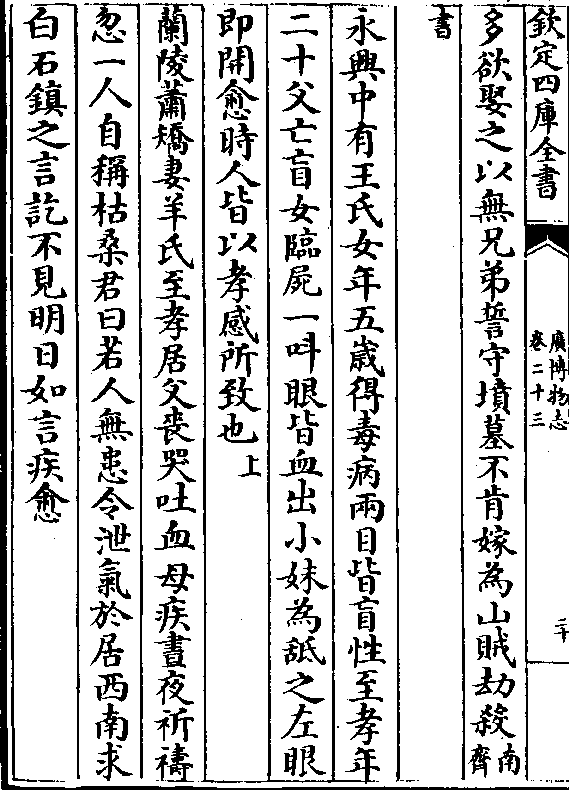 欽定四庫全書
廣博物志
卷二十三
二十
多欲娶之以無兄弟誓守墳墓不肯嫁為山賊劫殺南齊
書
永興中有王氏女年五歲得毒病兩目皆盲性至孝年
二十父亡盲女臨屍一叫眼皆血出小妹為舐之左眼
即開愈時人皆以孝感所致也上
蘭陵蕭矯妻羊氏至孝居父喪哭吐血母疾晝夜祈禱
忽一人自稱枯桑君曰若人無患令泄氣於居西南求
白石鎮之言訖不見明日如言疾愈